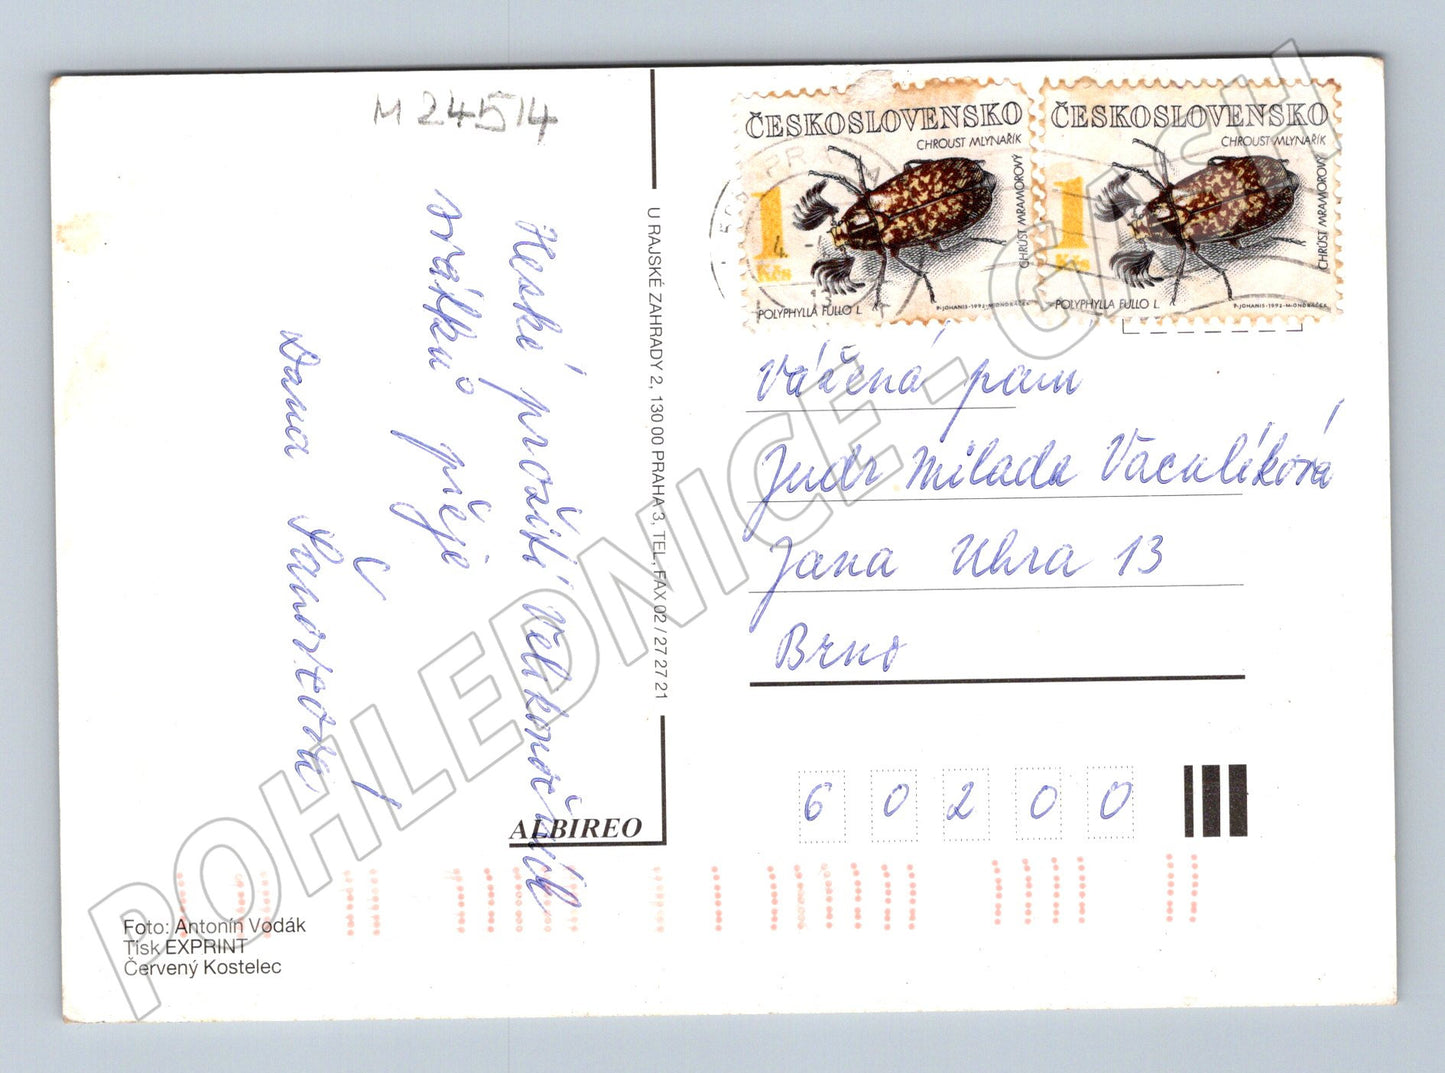 M 24514
Heské prožití Velikonočních
svátků přeje
Dana
U RAJSKÉ ZAHRADY 2, 130 00 PRAHA 3, TEL, FAX 02 / 27 27 21
ALBIREO
Foto: Antonín Vodák
Tisk EXPRINT
Červený Kostelec
ČESKOSLOVENSKO
CHROUST MLYNAŘÍK
CHRÚST MRAMOROVÝ
1
Kčs
POLYPHYLLA FULLO L.
P. JOHANIS - 1992 - M. ONDRÁČEK
ČESKOSLOVENSKO
CHROUST MLYNAŘÍK
CHRÚST MRAMOROVÝ
1
Kčs
POLYPHYLLA FULLO L.
P. JOHANIS - 1992 - M. ONDRÁČEK
Vážená paní
Judr Milada Vaculíková
Jana Uhra 13
Brno
60200
POHLEDNICE - CASH